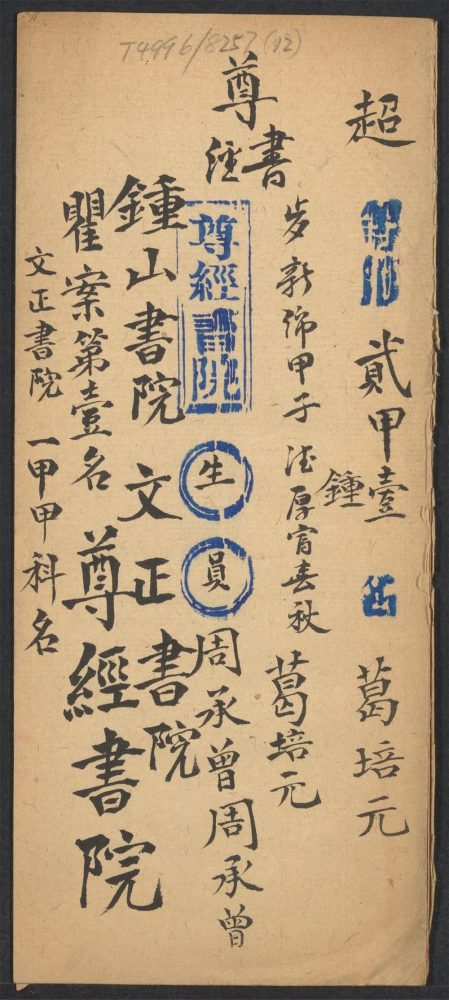 T4996/8257(12)
超 等 第 貳甲壹 名 葛培元
鍾
歲新綿甲子 德厚富春秋 葛培元
尊
書
經
尊經書院 生 員 周承曾周承曾
鍾山書院 文正書院
瞿案第壹名 尊經書院
文正書院 一甲甲科名